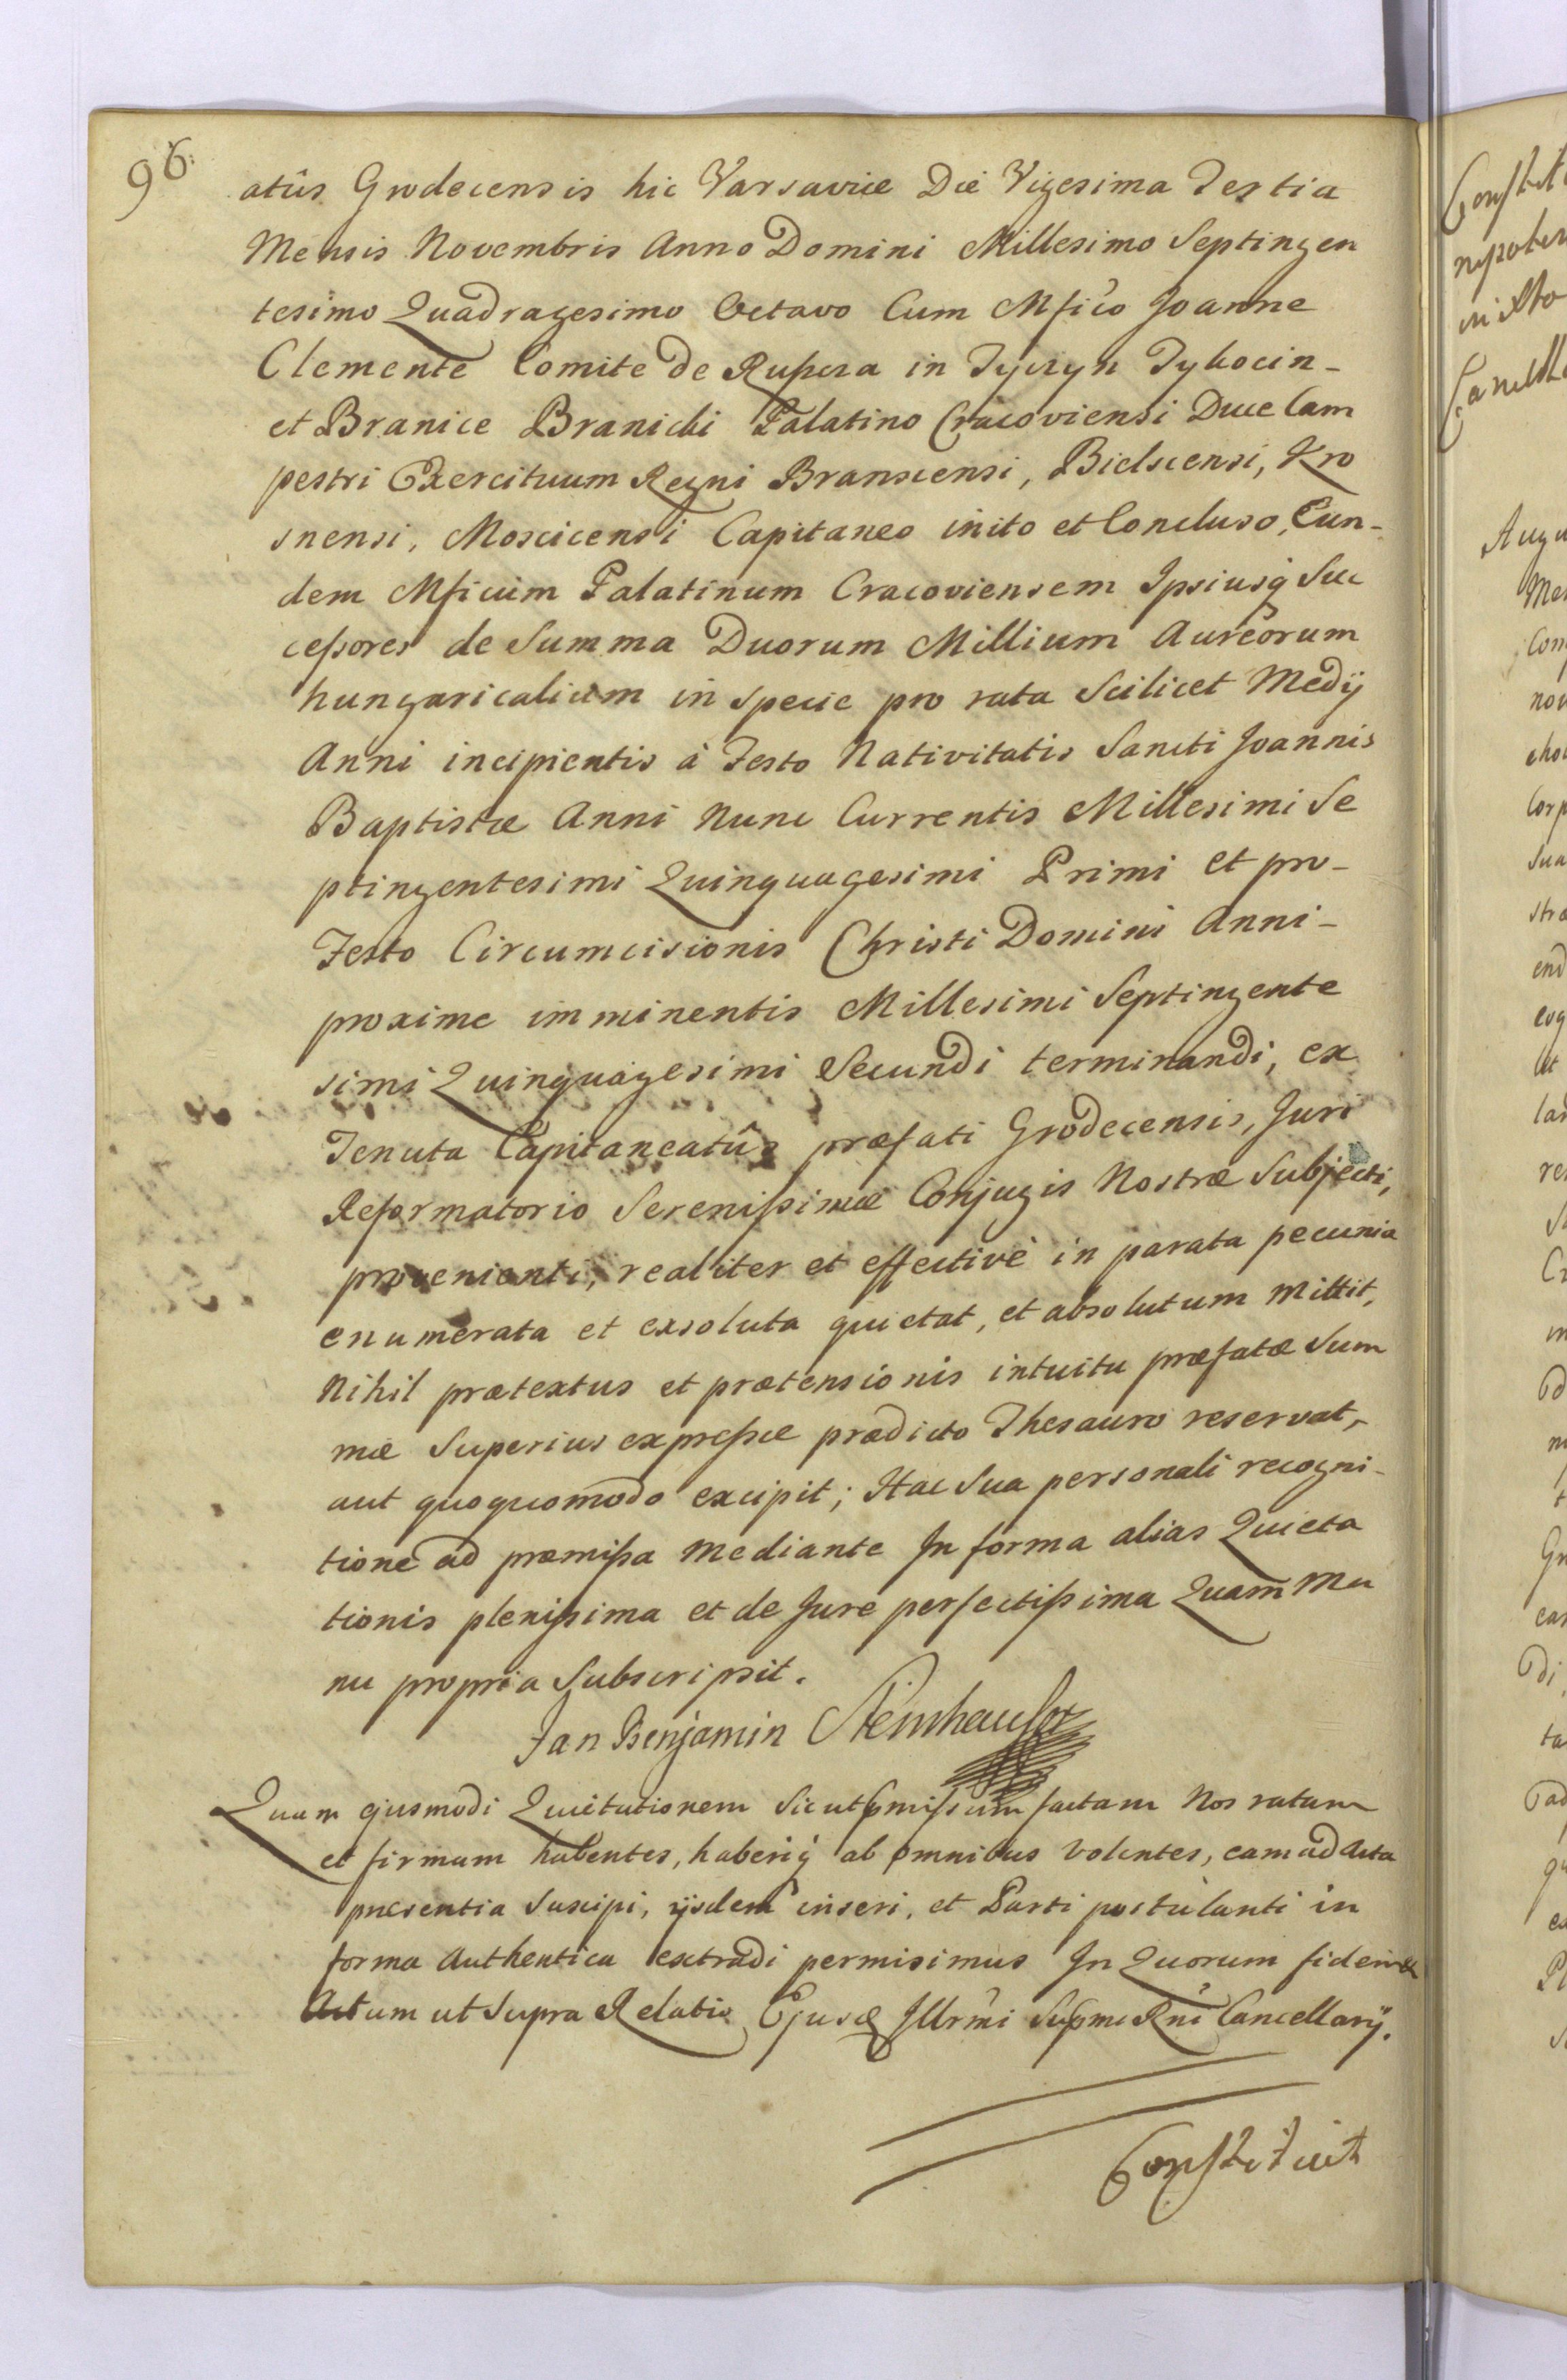 96.
atûs Grodecensis hic Varsaviæ Die Vigesima Tertia
Mensis Novembris Anno Domini Millesimo Septingen
tesimo Quadragesimo Octavo Cum Mfico Joanne
Clemente Comite de Ruszcza in Tyczyn Tykocin-
et Branice Branicki Palatino Cracoviensi Duce Cam
pestri Exercituum Regni Branscensi, Bielscensi, Kro
snensi, Moscicensi Capitaneo inito et Concluso, Eun-
dem Mficum Palatinum Cracoviensem Ipsiusq Suc
ceſsores de Summa Duorum Millium Aureorum
hungaricalium in specie pro rata Scilicet Medij
Anni incipientis à Festo Nativitatis Sancti Joannis
Baptistæ Anni Nunc Currentis Millesimi Se
ptingentesimi Quinquagesimi Primi et pro-
Festo Circumcisionis Christi Domini Anni-
proxime imminentis Millesimi Septingente
simi Quinquagesimi Secundi terminandi, ex
Tenuta Capitaneatûs præfati Grodecensis, Juri
Reformatorio Sereniſsimæ Conjugis Nostræ Subjecti,
provenienti, realiter et effectivè in parata pecunia
enumerata et exsoluta quietat, et absolutum mittit,
Nihil prætextus et prætensionis intuitu præfatæ Sum
mæ Superius expreſsæ prædicto Thesauro reservat,
aut quoquomodo excipit; Hac Sua personali recogni-
tione ad præmiſsa mediante In forma alias Quieta
tionis pleniſsima et de Jure perfectiſsima Quam Ma
nu propria Subscripsit.
Jan Benjamin Steinhauser
Quam ejusmodi Quietationem Sicut pmiſsum factam Nos ratam
et firmam habentes, haberiq ab omnibus volentes, eam ad Acta
præsentia Suscipi, ijsdem inseri, et Parti postulanti in
forma Authentica extradi permisimus In Quorum fidem &
Actum ut Supra Relatio Ejusd Illrmi Supmi Rni Cancellarij.
Constituit